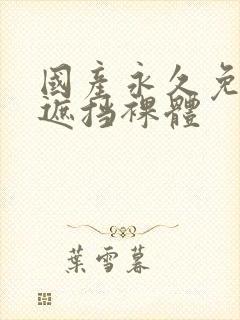 國產永久免
遮挡裸體
葉雪暮